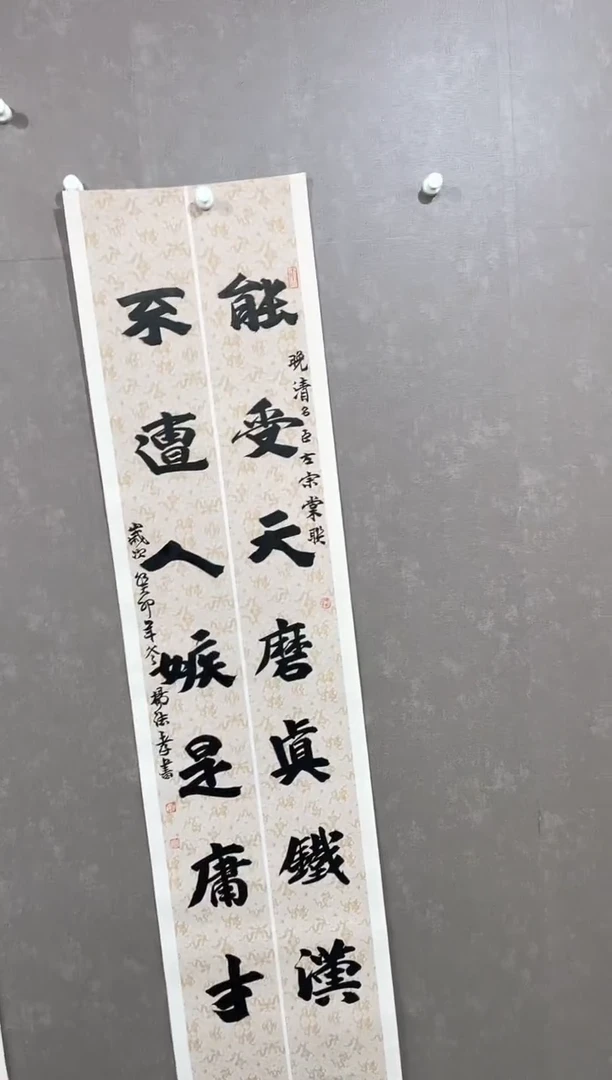 能受天磨真鐵漢
晚清名臣左宗棠联
不遭人嫉是庸才
歲次癸卯年冬楊德孝書